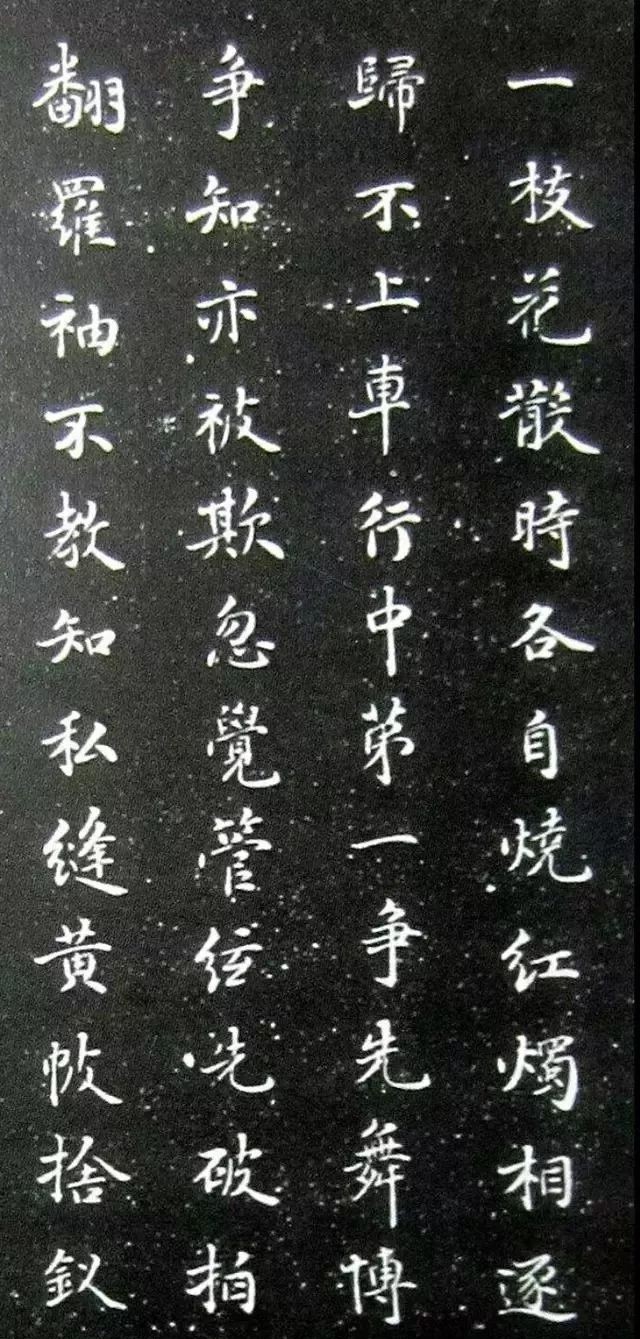 一枝花散時各自燒紅燭相逐
歸不上車行中苐一争先舞博
争知亦被欺忽覺管弦先破拍
翻羅袖不教知私縫黄帔捨釵